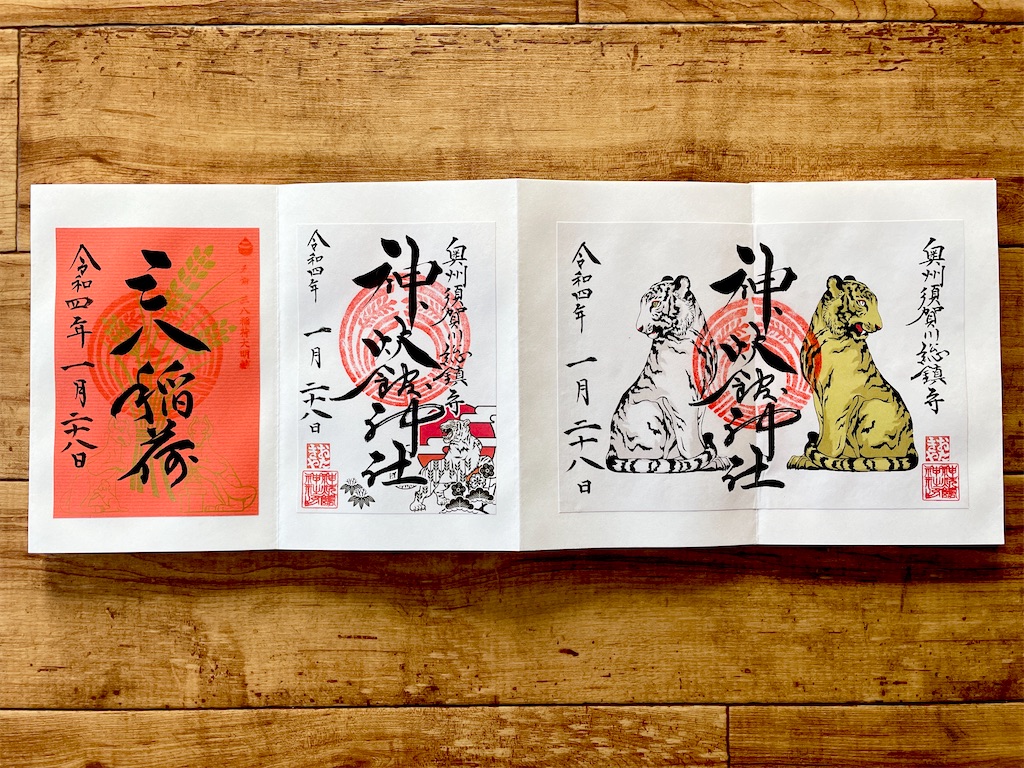 奥州須賀川総鎮守
神炊館神社
令和四年 一月 二十八日
奥州須賀川総鎮守
神炊館神社
令和四年 一月 二十八日
三八稲荷
令和四年 一月 二十八日